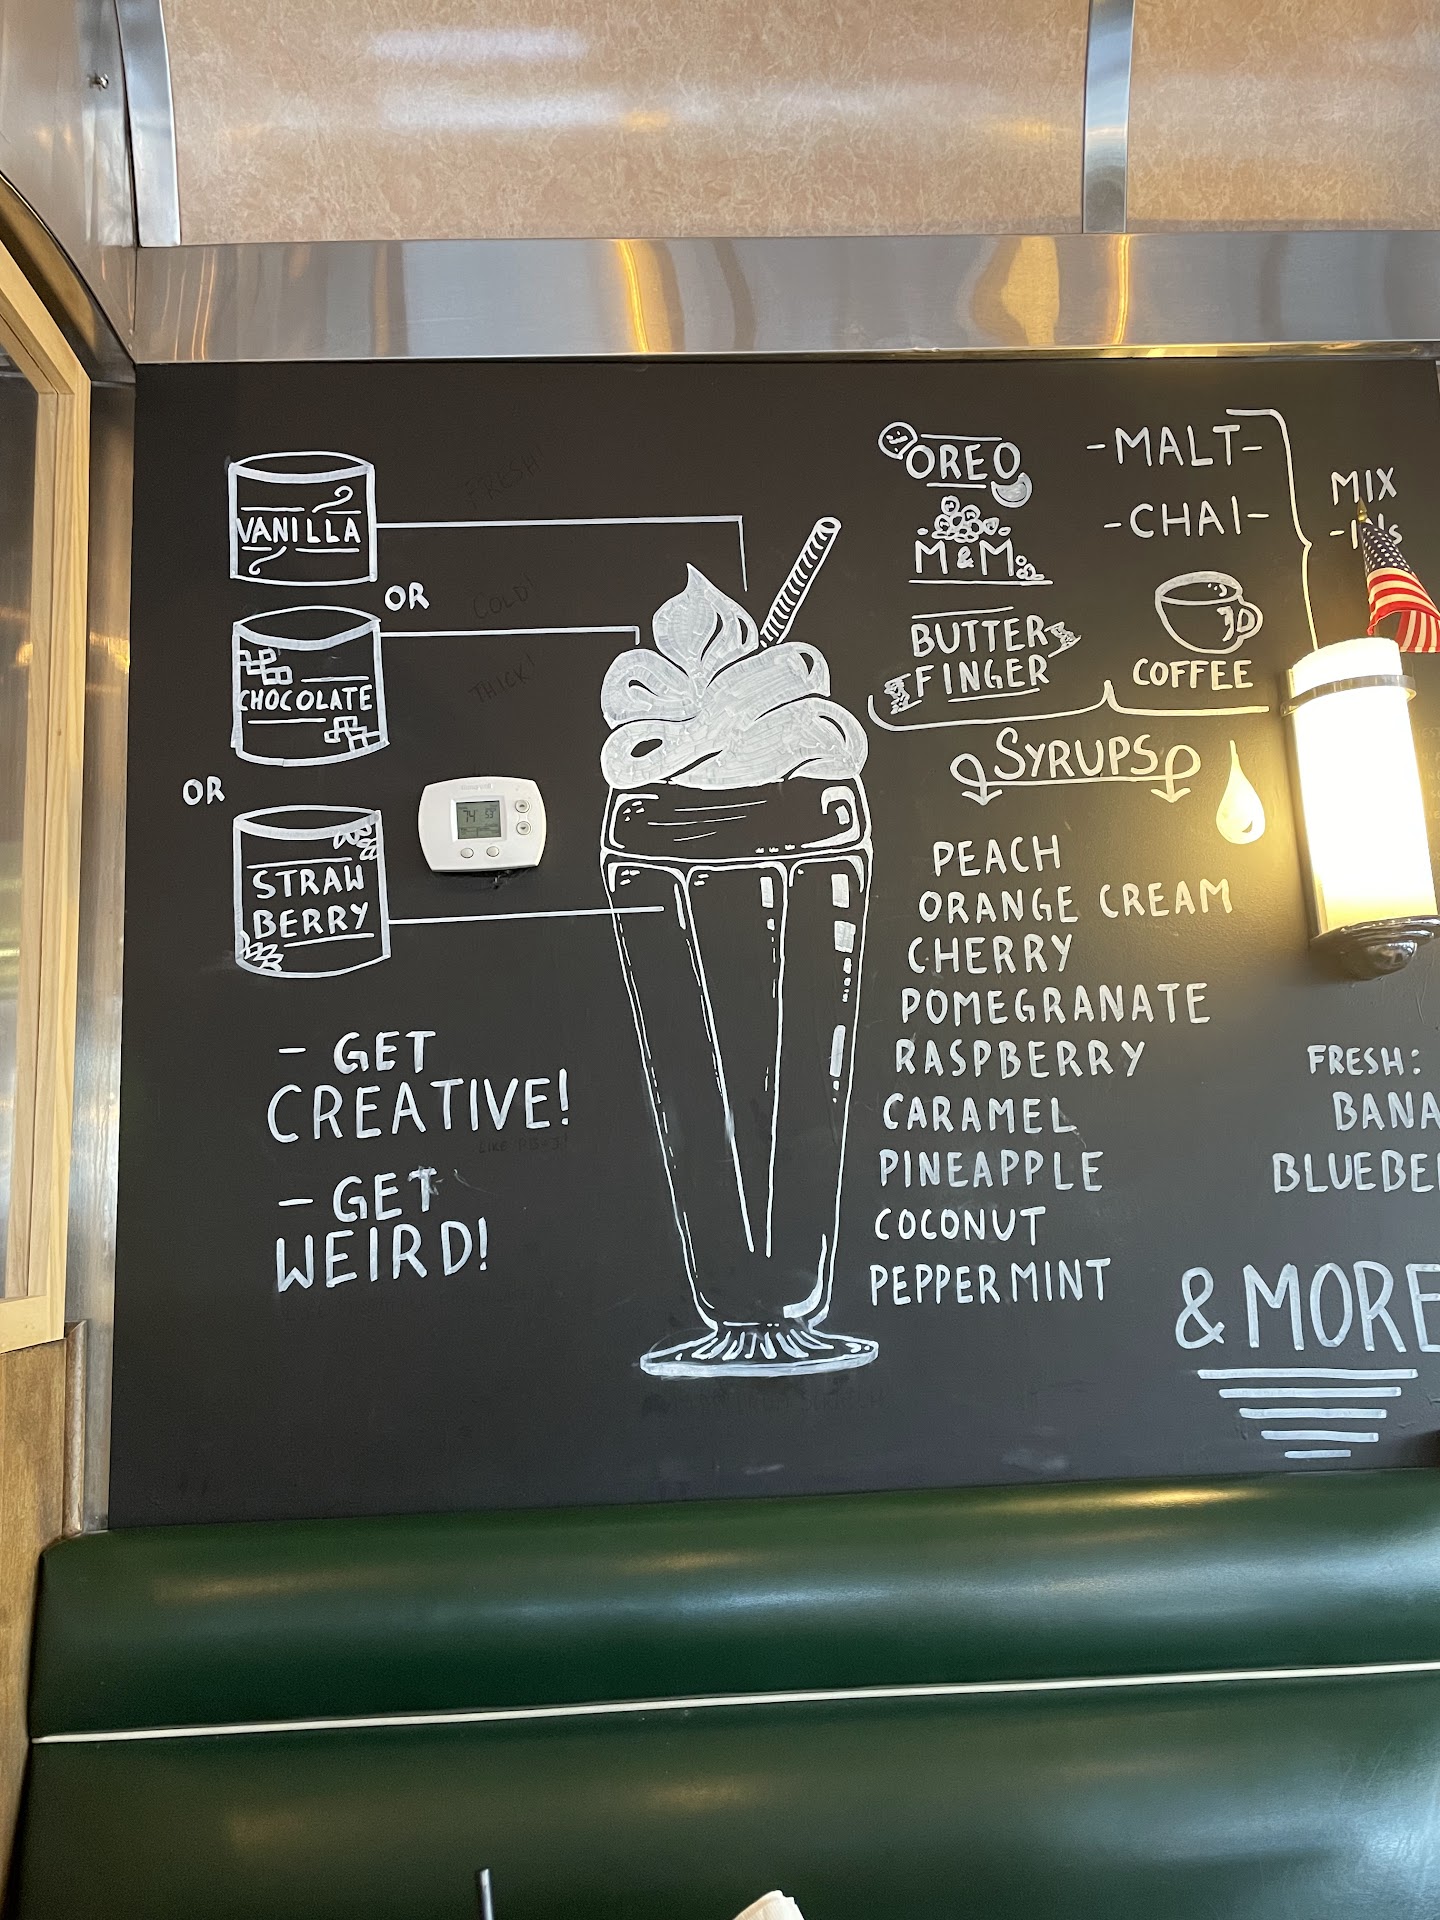 VANILLA
OR
CHOCOLATE
OR
STRAW
BERRY
FRESH!
COLD!
THICK!
74 53
- GET
CREATIVE!
- GET
WEIRD!
OREO
M&Ms
BUTTER
FINGER
-MALT-
-CHAI-
COFFEE
MIX
SYRUPS
PEACH
ORANGE CREAM
CHERRY
POMEGRANATE
RASPBERRY
CARAMEL
PINEAPPLE
COCONUT
PEPPERMINT
FRESH:
BANA
BLUEBE
& MORE